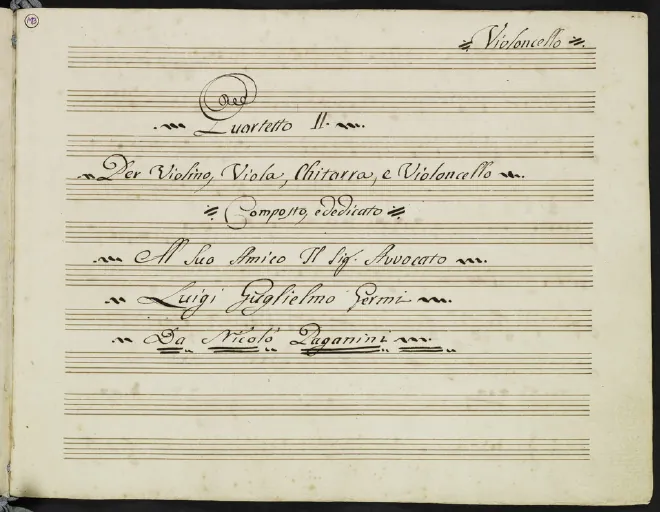 Violoncello
Quartetto II.
Per Violino, Viola, Chitarra, e Violoncello
Composto, e dedicato
Al Suo Amico Il Sig.r Avvocato
Luigi Guglielmo Germi
Da Nicolò Paganini